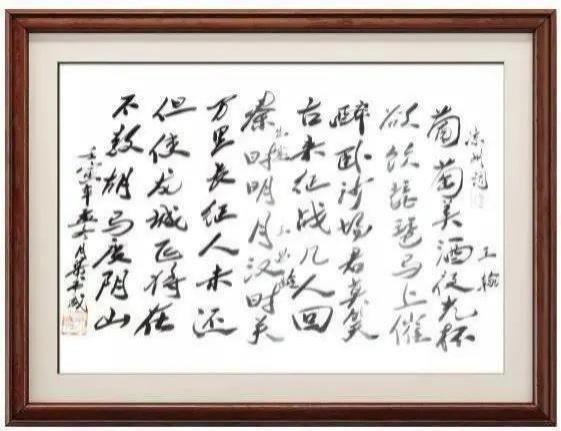 凉州词 王翰
葡萄美酒夜光杯
欲饮琵琶马上催
醉卧沙场君莫笑
古来征战几人回
出塞 王昌龄
秦时明月汉时关
万里长征人未还
但使龙城飞将在
不教胡马度阴山
壬寅年